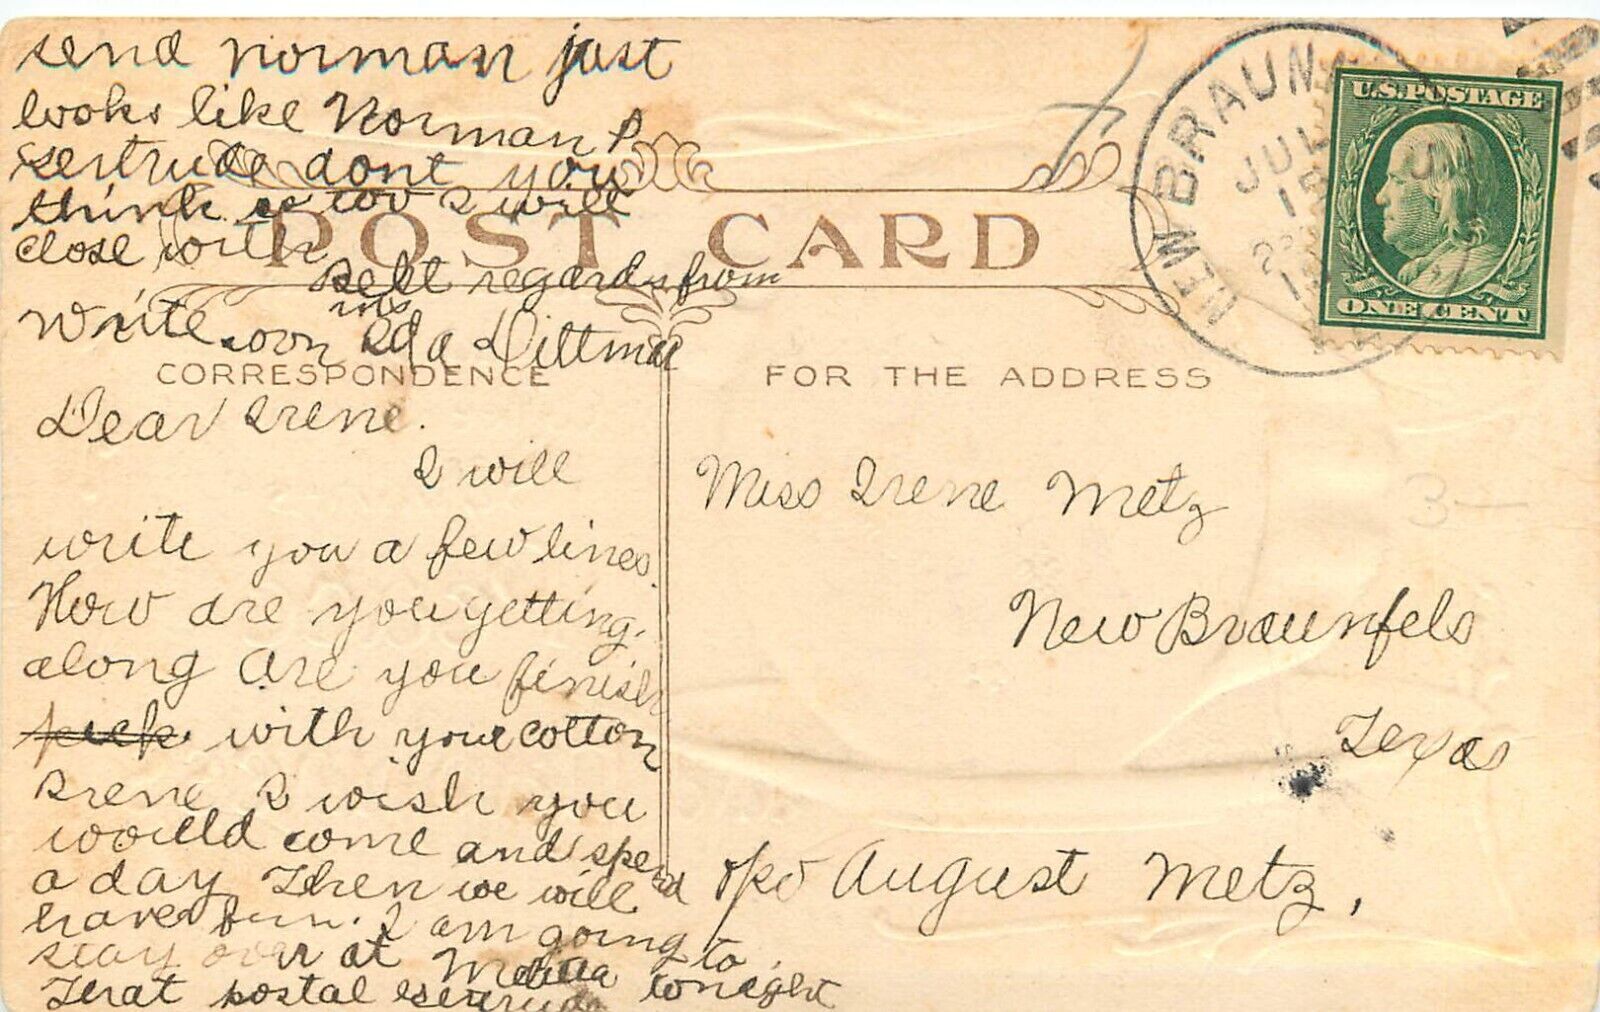 send Norman just
looks like Norman P.
Gertrude dont you
think so too I will
close with
Best regards from
Write soon Miss Ella Dittmar
POST CARD
CORRESPONDENCE
FOR THE ADDRESS
NEW BRAUN
JUL
15
U.S. POSTAGE
ONE CENT
Dear Irene.
I will
write you a few lines.
How are you getting,
along are you finish
pick with your cotton
Irene I wish you
would come and spend
a day. Then we will
have fun. I am going to
stay over at Melitta tonight
That postal Gertrude
Miss Irene Metz
New Braunfels
Texas
c/o August Metz,
3—